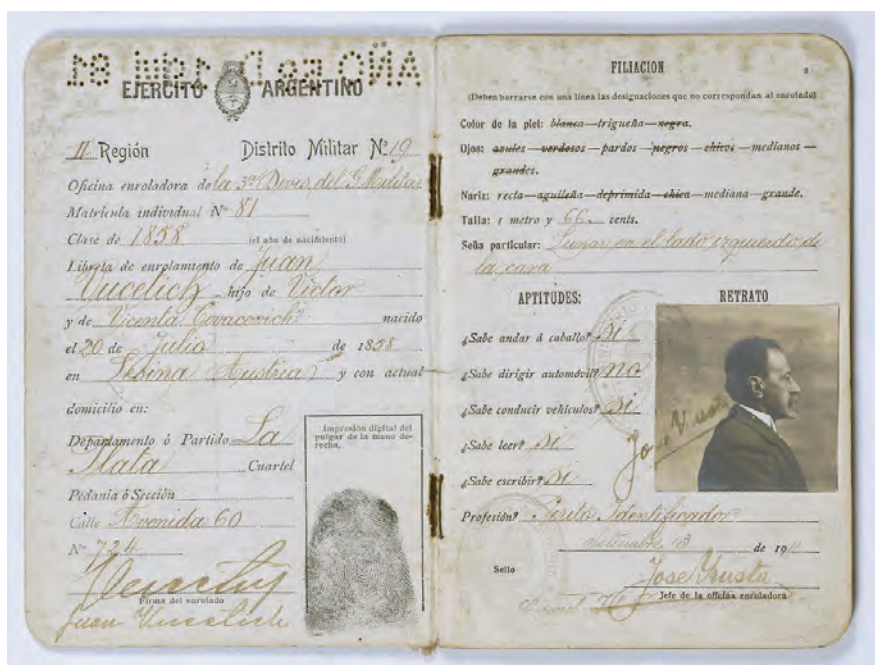 EJERCITO ARGENTINO
II Región Distrito Militar Nº 19
Oficina enroladora de la 3ª Divis. del G. Militar
Matrícula individual Nº 81
Clase de 1858 (el año de nacimiento)
Libreta de enrolamiento de Juan
Vucetich hijo de Victor
y de Vicenta Covacevich nacido
el 20 de Julio de 1858
en Lesina Austria y con actual
domicilio en:
Departamento ó Partido La
Plata Cuartel
Pedanía ó Sección
Calle Avenida 60
Nº 724
Firma del enrolado
Juan Vucetich
Impresión digital del
pulgar de la mano de-
recha.
FILIACION
(Deben borrarse con una línea las designaciones que no correspondan al enrolado)
Color de la piel: blanca—trigueña—negra.
Ojos: azules—verdosos—pardos—negros—chicos—medianos—
grandes.
Nariz: recta—aguileña—deprimida—chica—mediana—grande.
Talla: 1 metro y 66 cents.
Seña particular: Lunar en el lado izquierdo de
la cara
APTITUDES:
¿Sabe andar á caballo? Si
¿Sabe dirigir automóvil? no
¿Sabe conducir vehículos? Si
¿Sabe leer? Si
¿Sabe escribir? Si
RETRATO
Profesión? Perito Identificador
13 de 191
Sello
Jefe de la oficina enroladora